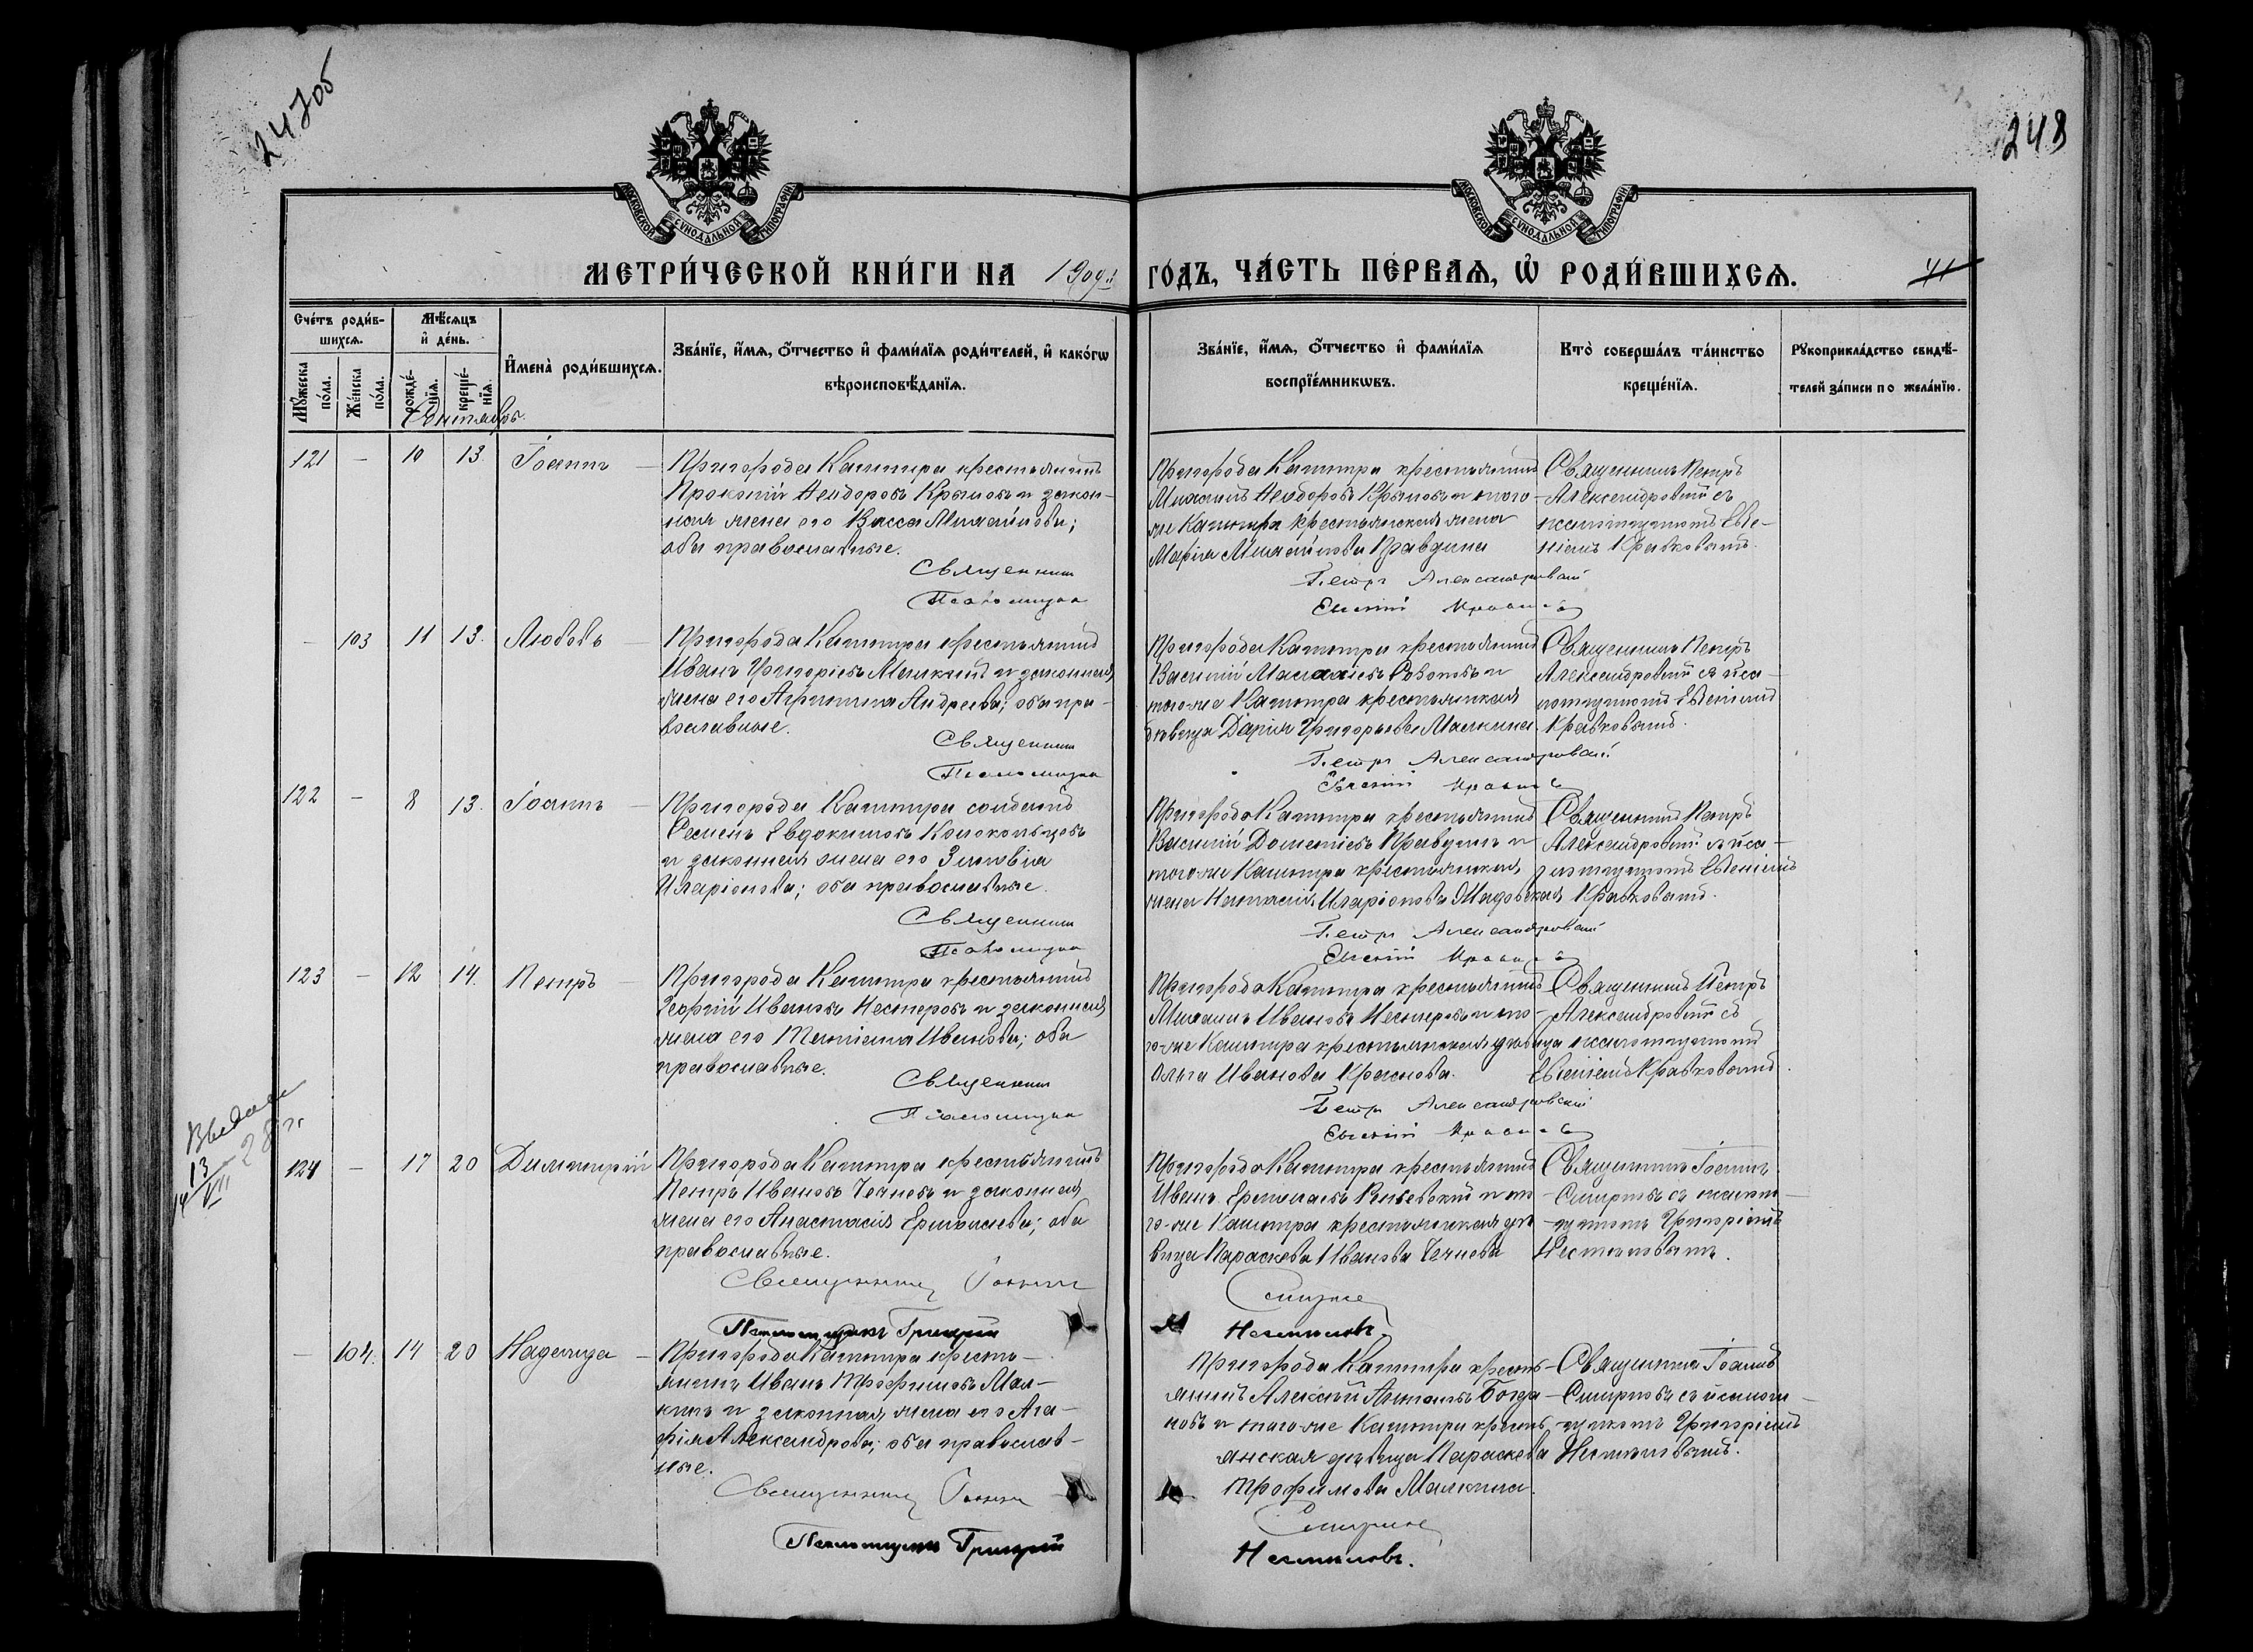 247об
248
МОСКОВСКОЙ СѴНОДАЛЬНОЙ ТИПОГРАФІИ
МОСКОВСКОЙ СѴНОДАЛЬНОЙ ТИПОГРАФІИ
МЕТРИ́ЧЕСКОЙ КНИ́ГИ НА 1909й ГО́ДЪ, ЧА́СТЬ ПЕ́РВАѦ, Ѽ РОДИ́ВШИХСѦ.
41
Сче́тъ роди́в-
шихсѧ.
Мꙋ́жеска по́ла.
Же́нска по́ла.
Мѣ́сѧцъ
и҆ де́нь.
рожде́-
нїѧ.
креще́-
нїѧ.
И҆мена̀ роди́вшихсѧ.
Зва́нїе, и҆́мѧ, ѻ҆́тчество и҆ фами́лїѧ роди́телей, и҆ како́гѡ
вѣроисповѣ́данїѧ.
Зва́нїе, и҆́мѧ, ѻ҆́тчество и҆ фами́лїѧ
воспрїе́мникѡвъ.
Кто̀ соверша́лъ та́инство
креще́нїѧ.
Рꙋкоприкла́дство свидѣ́-
телей за́писи по жела́нїю.
121 — 10 13. Іоаннъ —
Пригорода Кашпира крестьянинъ
Прокопій Ѳеодоровъ Крыловъ и закон-
ная жена его Васса Михайлова;
оба православные.
Священник
Псаломщик
Пригорода Кашпира крестьянинъ
Михаилъ Ѳеодоровъ Крыловъ и того-
же Кашпира крестьянская жена
Марія Михайлова Правдина
Петр Александровский
Евгений
Священникъ Петръ
Александровскій съ
псаломщикомъ Евге-
ніемъ Кравковымъ.
— 103 11 13. Любовь —
Пригорода Кашпира крестьянинъ
Иванъ Григорьевъ Малкинъ и законная
жена его Агрипина Андреева; оба пра-
вославные.
Священник
Псаломщик
Пригорода Кашпира крестьянинъ
Василій и
того-же Кашпира крестьянская
дѣвица Дарія Григорьева Малкина.
Петр Александровский
Евгений
Священникъ Петръ
Александровскій съ пса-
ломщикомъ Евгеніемъ
Кравковымъ.
122 — 8 13. Іоаннъ —
Пригорода Кашпира солдатъ
Семенъ Евдокимовъ Колокольцовъ
и законная жена его Зиновія
Иларіонова; оба православные.
Священник
Псаломщик
Пригорода Кашпира крестьянинъ
Василій Дометіевъ Правдинъ и
того-же Кашпира крестьянская
жена Наталія Иларіонова
Петр Александровский
Евгений
Священникъ Петръ
Александровскій съ пса-
ломщикомъ Евгеніемъ
Кравковымъ.
123 — 12 14. Петръ —
Пригорода Кашпира крестьянинъ
Георгій Ивановъ Нестеровъ и законная
жена его Татіана Иванова; оба
православные.
Священник
Псаломщик
Пригорода Кашпира крестьянинъ
Михаилъ Ивановъ Нестеровъ и то-
го-же Кашпира крестьянская дѣвица
Ольга Иванова Краснова.
Петр Александровский
Евгений
Священникъ Петръ
Александровскій съ
псаломщикомъ
Евгеніемъ Кравковымъ.
13
VII
28 г.
124 — 17 20 Димитрій
Пригорода Кашпира крестьянинъ
Петръ Ивановъ Чечневъ и законная
жена его Анастасія Ермолаева; оба
православные.
Священник Иоанн
Псаломщикъ Григорий
Пригорода Кашпира крестьянинъ
Иванъ Ермолаевъ и то-
го-же Кашпира крестьянская дѣ-
вица Параскева Иванова Чечнева
Смирнов
Неплюновъ.
Священникъ Іоаннъ
Смирновъ съ псалом-
щикомъ Григоріемъ
— 104. 14 20 Надежда —
Пригорода Кашпира кресть-
янинъ Иванъ Трофимовъ Мал-
кинъ и законная жена его Ага-
фія Александрова; оба православ-
ные.
Священник Иоанн
Псаломщикъ Григорий
Пригорода Кашпира кресть-
янинъ Алексѣй Антоновъ Богда-
новъ и того-же Кашпира кресть-
янская дѣвица Параскева
Трофимова Малкина.
Смирнов
Священникъ Іоаннъ
Смирновъ съ псалом-
щикомъ Григоріемъ